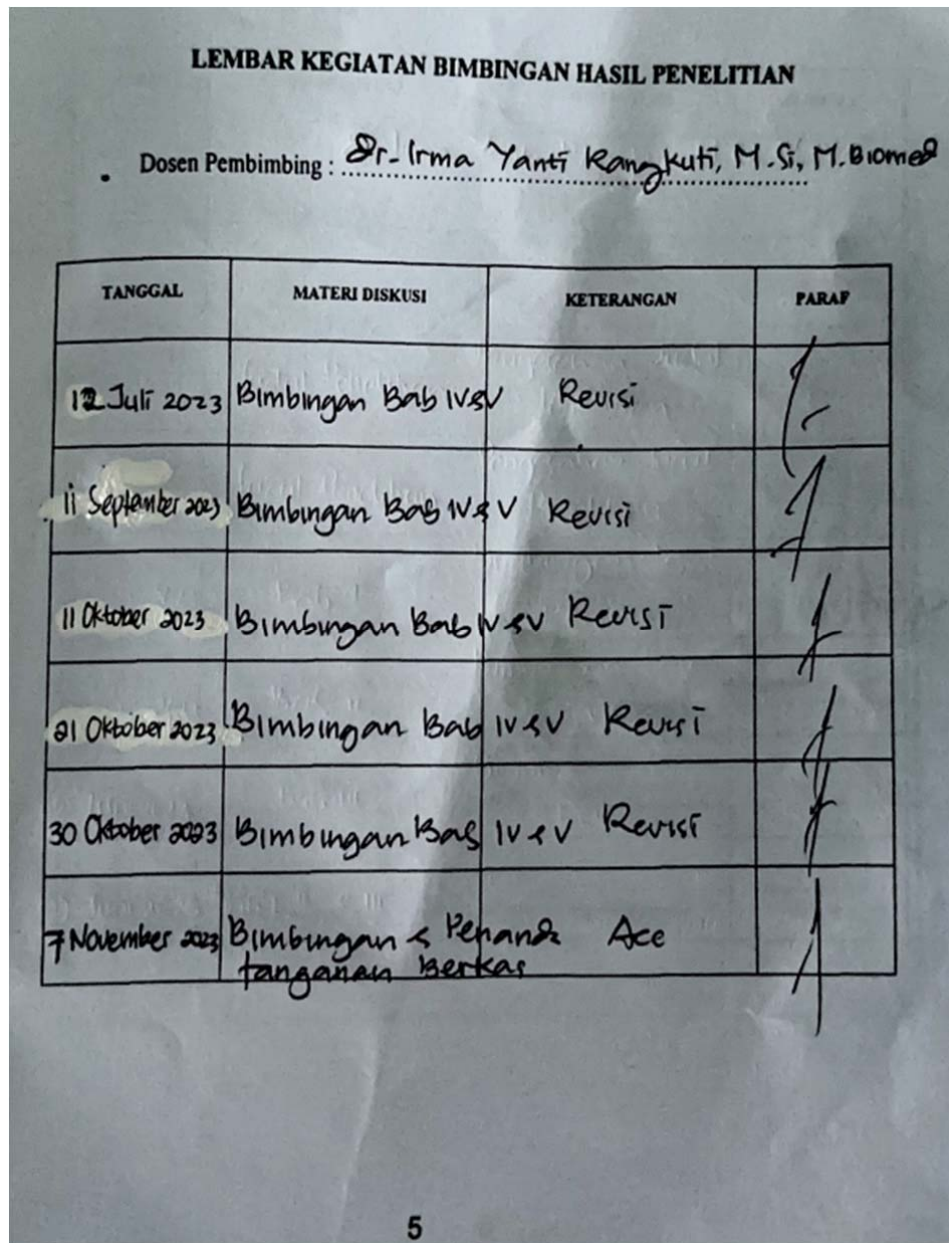 LEMBAR KEGIATAN BIMBINGAN HASIL PENELITIAN
Dosen Pembimbing : Dr. Irma Yanti Rangkuti, M.Si, M.Biomed
TANGGAL MATERI DISKUSI KETERANGAN PARAF
12 Juli 2023 Bimbingan Bab IV & V Revisi
11 September 2023 Bimbingan Bab IV & V Revisi
11 Oktober 2023 Bimbingan Bab IV & V Revisi
21 Oktober 2023 Bimbingan Bab IV & V Revisi
30 Oktober 2023 Bimbingan Bab IV & V Revisi
7 November 2023 Bimbingan & Penanda Acc
tanganan Berkas
5